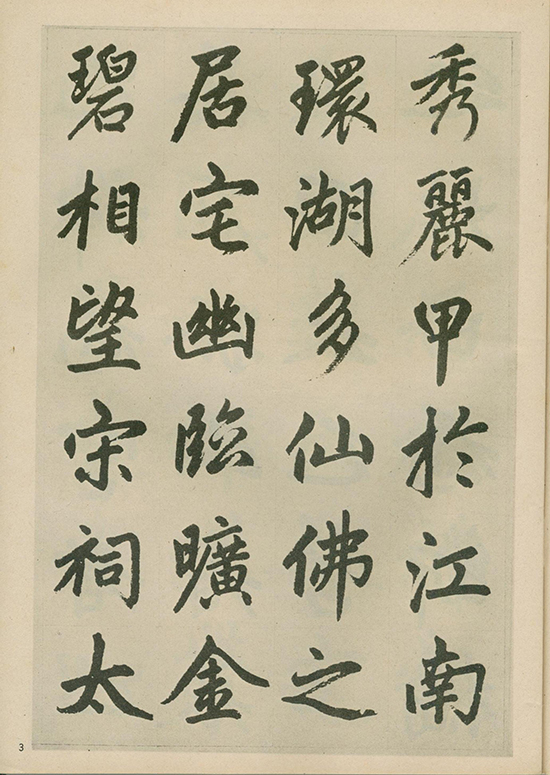 秀麗甲於江南
環湖多仙佛之
居宅幽臨曠金
碧相望宋祠太
3